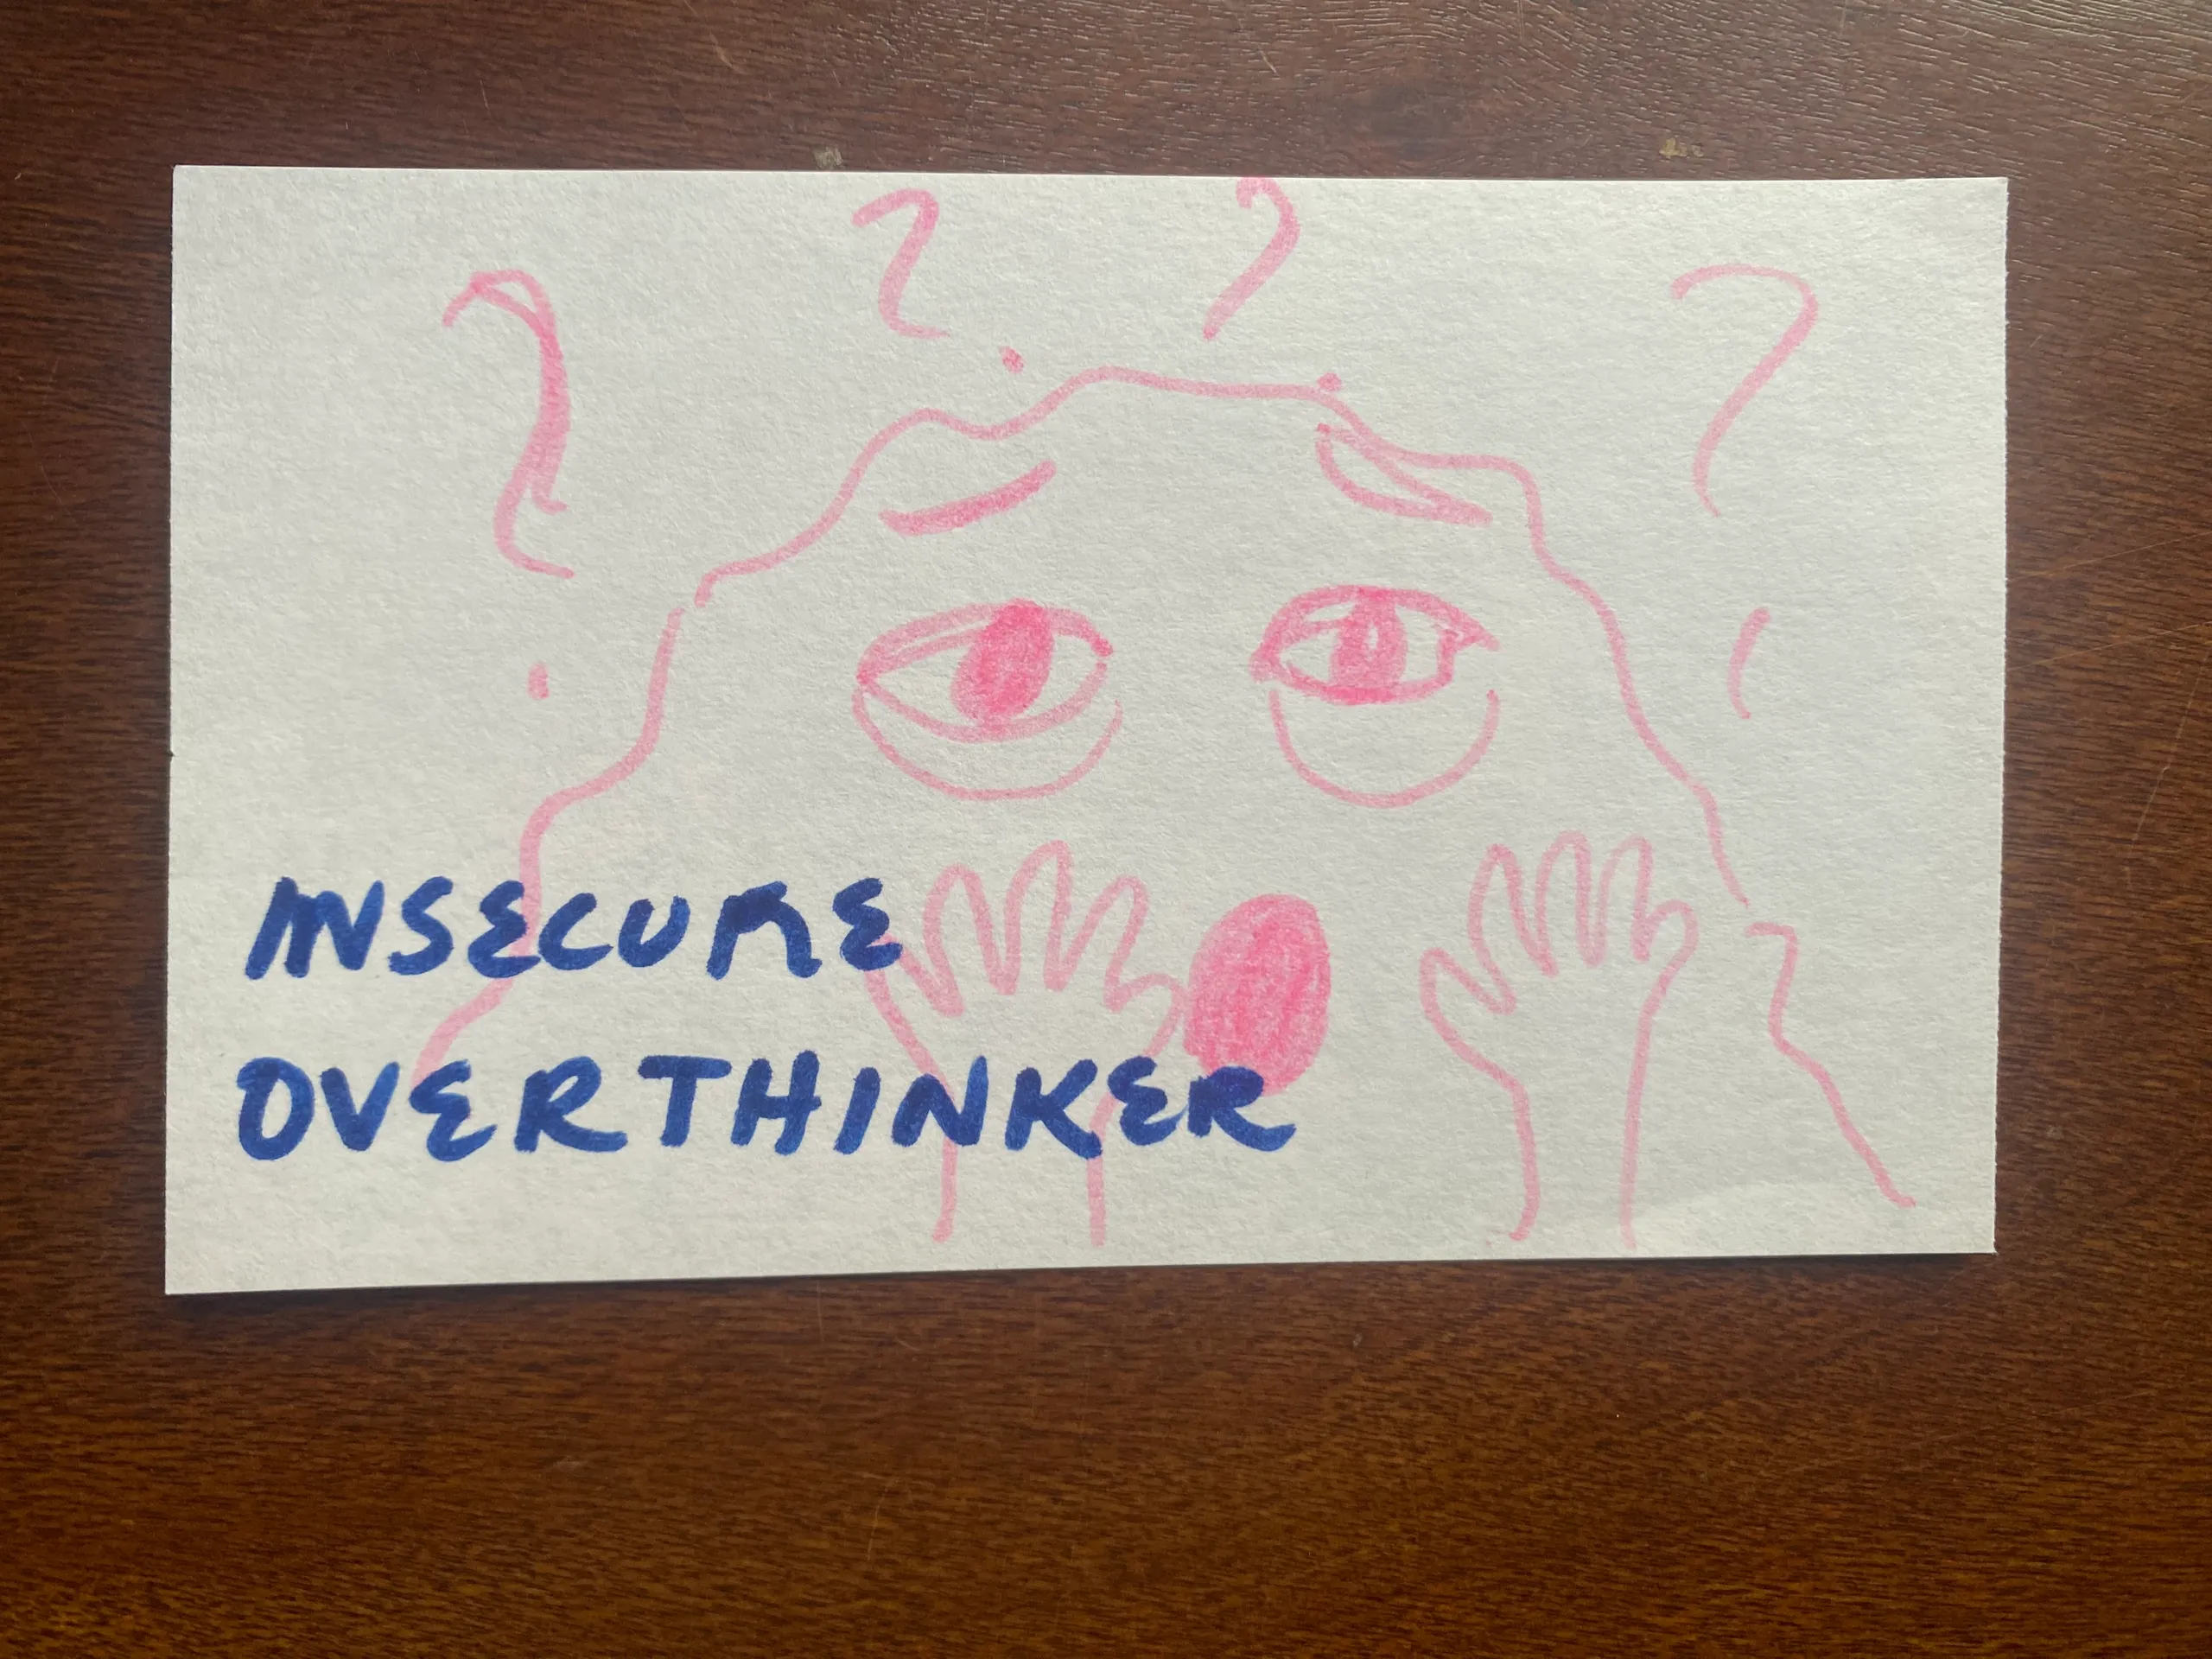 ? ? ? ?
INSECURE
OVERTHINKER